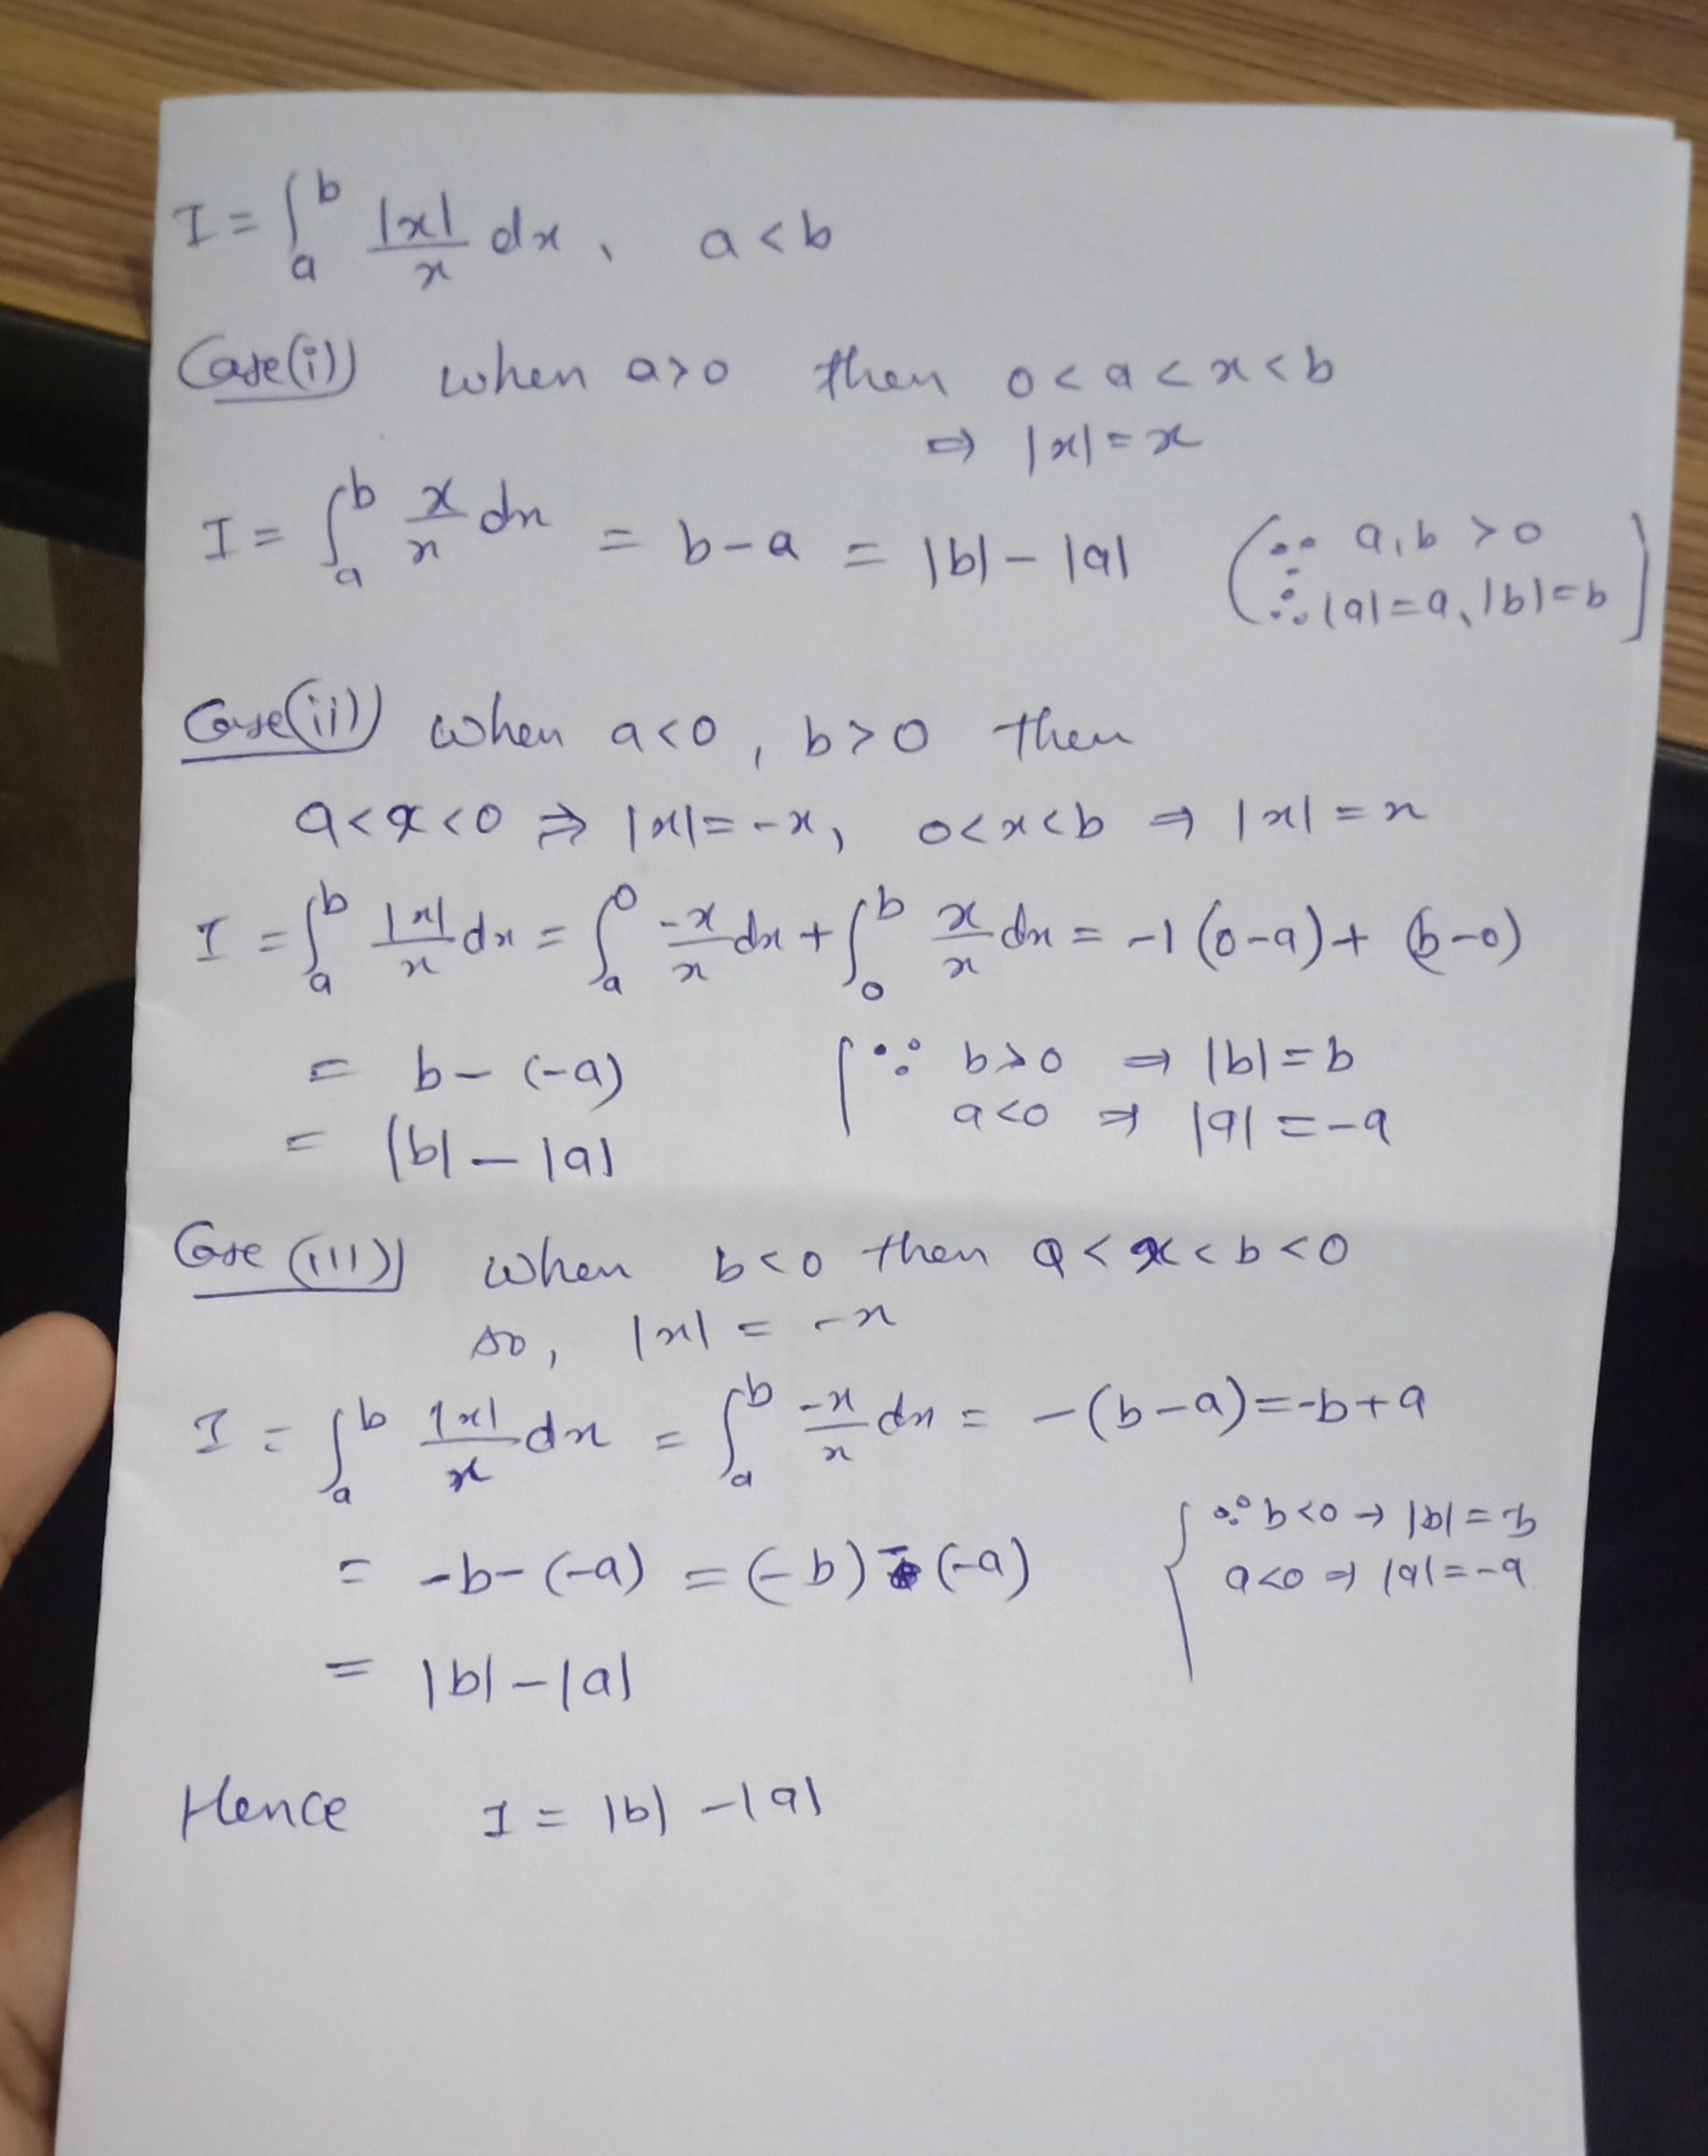 I = ∫_a^b |x|/x dx, a < b
Case(i) when a>0 then 0 < a < x < b
⇒ |x| = x
I = ∫_a^b x/x dx = b-a = |b| - |a| (∵ a, b > 0
∴ |a| = a, |b| = b]
Case(ii) when a<0, b>0 then
a < x < 0 ⇒ |x| = -x, 0 < x < b ⇒ |x| = x
I = ∫_a^b |x|/x dx = ∫_a^0 -x/x dx + ∫_0^b x/x dx = -1 (0-a) + (b-0)
= b - (-a) { ∵ b>0 ⇒ |b| = b
= |b| - |a| a<0 ⇒ |a| = -a
Case (iii) when b<0 then a < x < b < 0
so, |x| = -x
I = ∫_a^b |x|/x dx = ∫_a^b -x/x dx = -(b-a) = -b+a
{ ∵ b<0 → |b| = -b
= -b-(-a) = (-b) - (-a) a<0 ⇒ |a| = -a
= |b| - |a|
Hence I = |b| - |a|